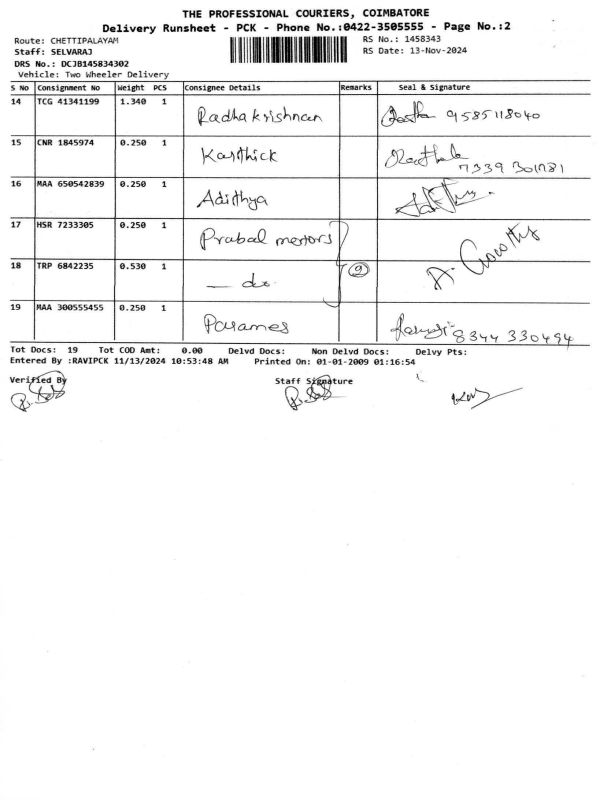 THE PROFESSIONAL COURIERS, COIMBATORE
Delivery Runsheet - PCK - Phone No.:0422-3505555 - Page No.:2
Route: CHETTIPALAYAM RS No.: 1458343
Staff: SELVARAJ RS Date: 13-Nov-2024
DRS No.: DCJB145834302
Vehicle: Two Wheeler Delivery
S No Consignment No Weight PCS Consignee Details Remarks Seal & Signature
14 TCG 41341199 1.340 1 Radhakrishnan 9585118040
15 CNR 1845974 0.250 1 Karthick 7339 301781
16 MAA 650542839 0.250 1 Adithya
17 HSR 7233305 0.250 1 Prabal motors
18 TRP 6842235 0.530 1 — do 9
19 MAA 300555455 0.250 1 Parames 8344 330494
Tot Docs: 19 Tot COD Amt: 0.00 Delvd Docs: Non Delvd Docs: Delvy Pts:
Entered By :RAVIPCK 11/13/2024 10:53:48 AM Printed On: 01-01-2009 01:16:54
Verified By Staff Signature